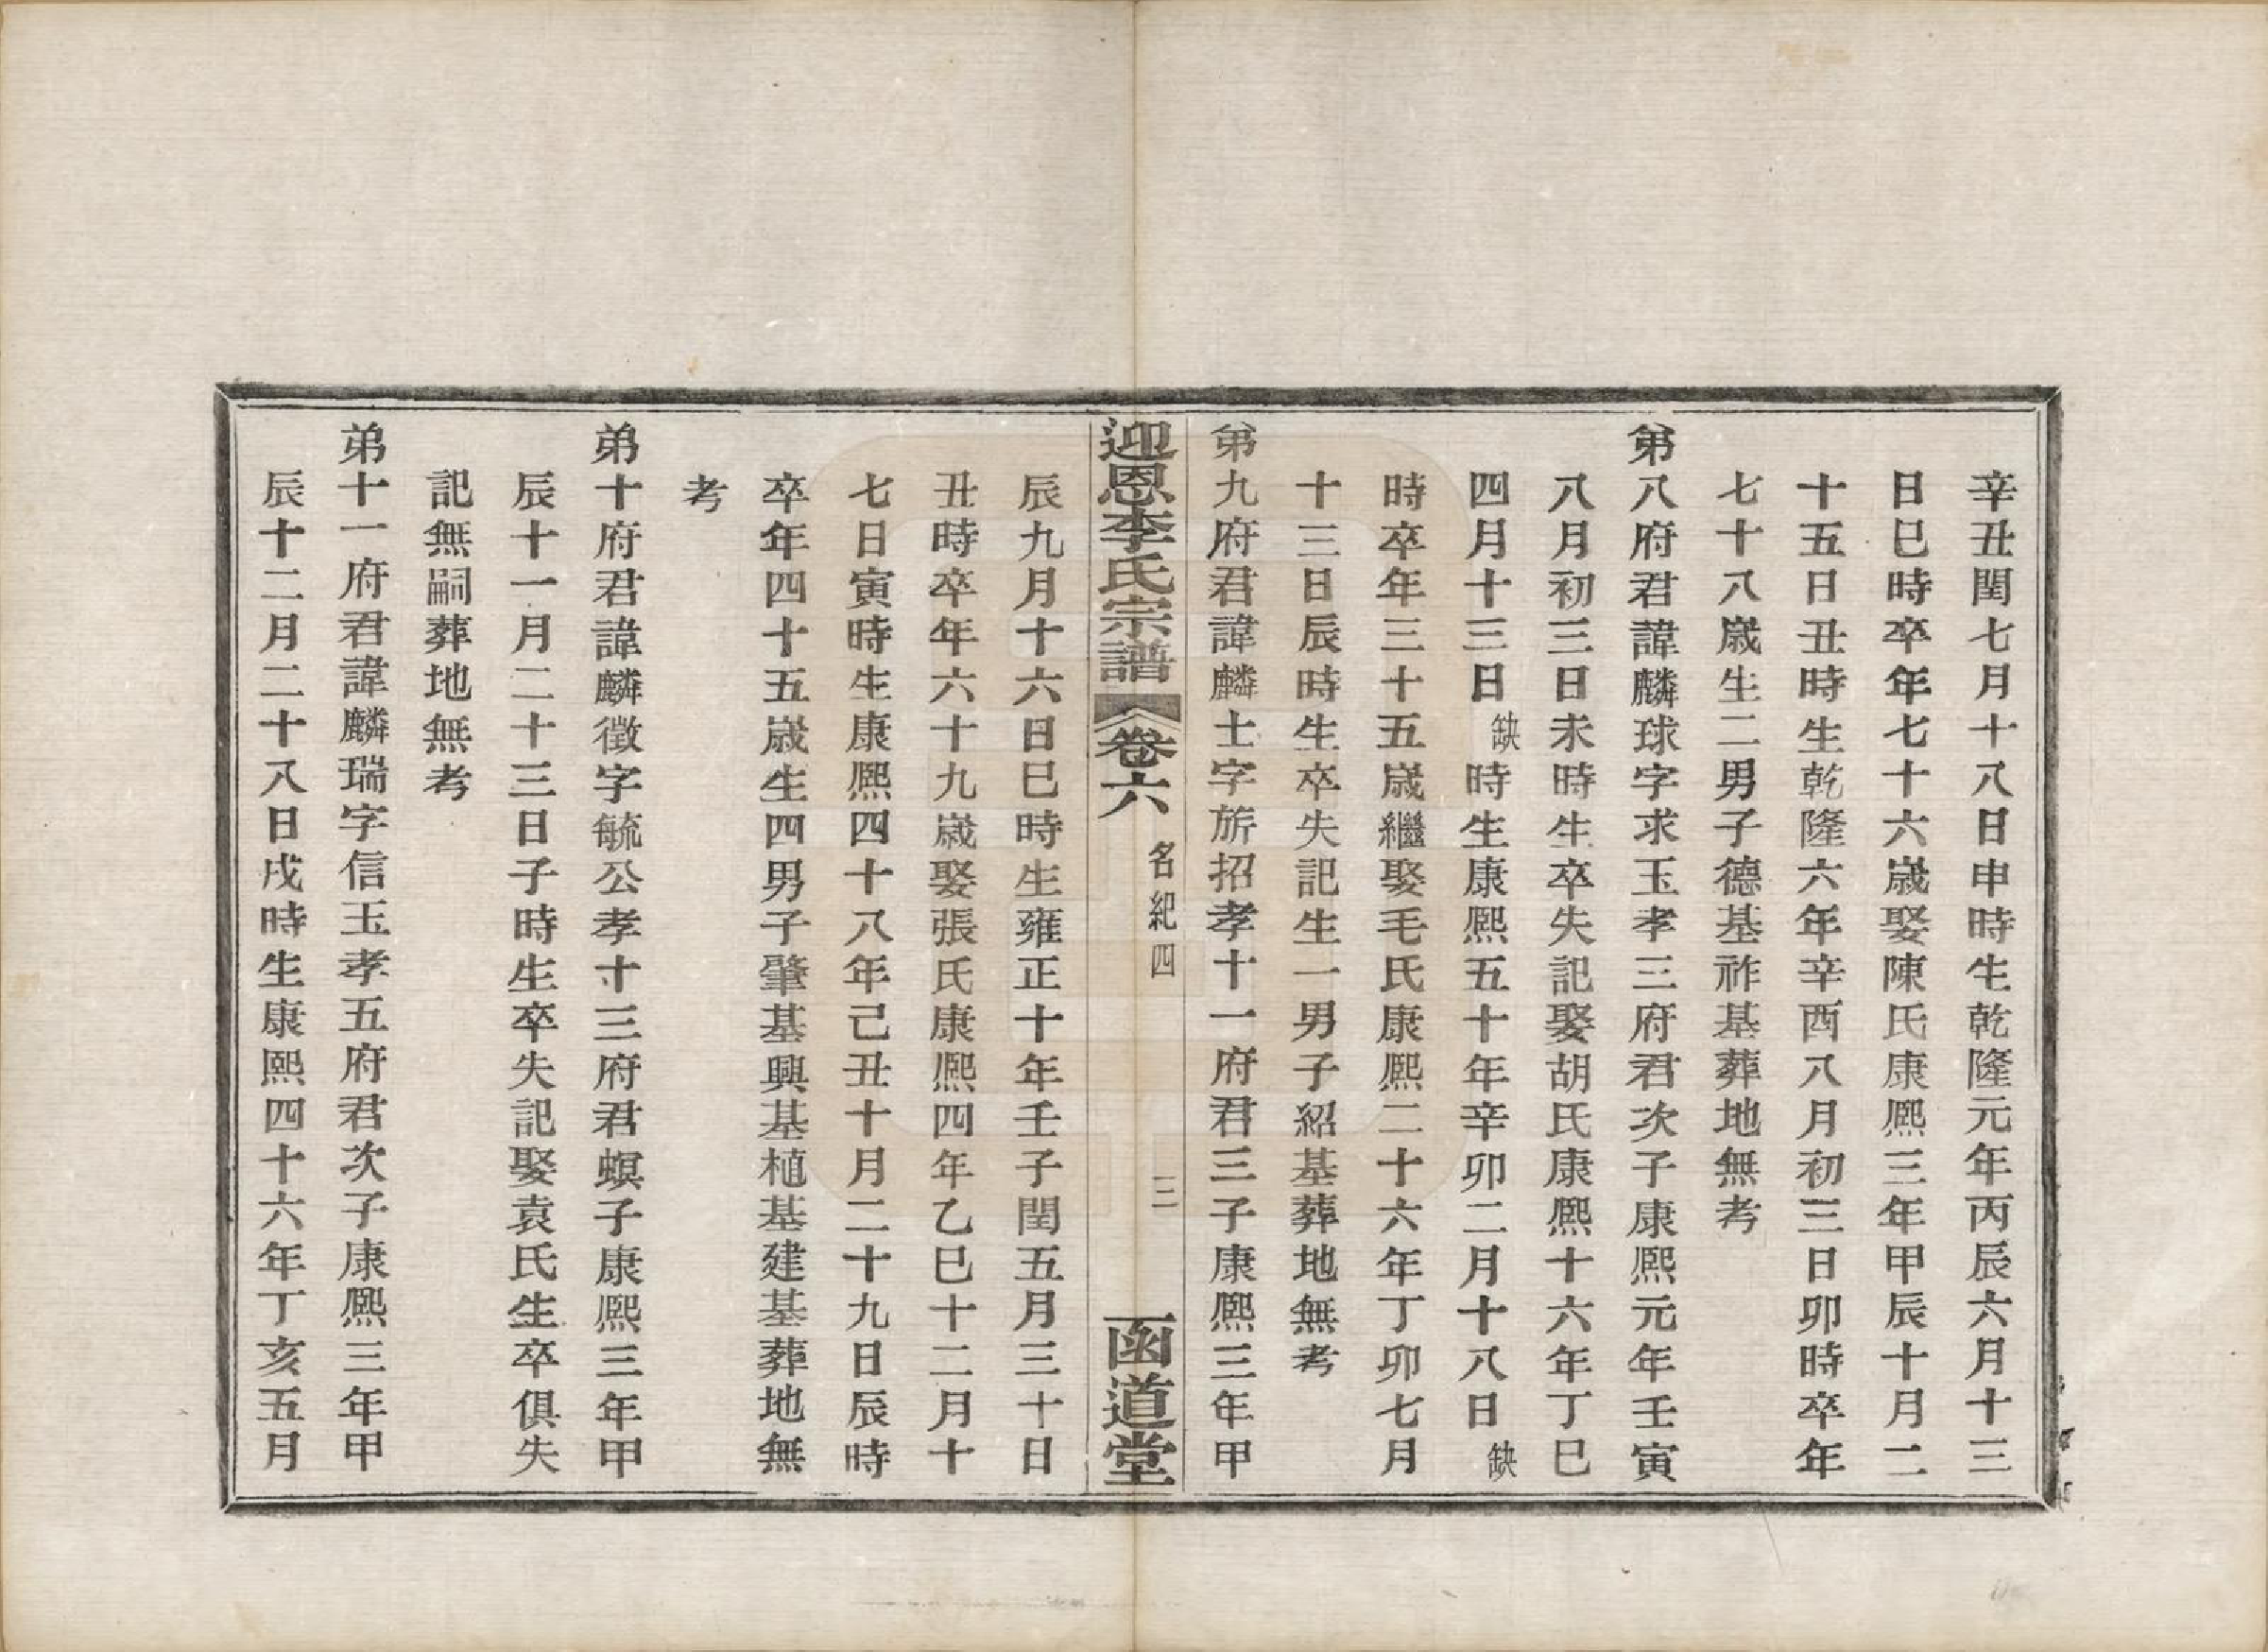 辛丑閏七月十八日申時生乾隆元年丙辰六月十三
日巳時卒年七十六歲娶陳氏康熙三年甲辰十月二
十五日丑時生乾隆六年辛酉八月初三日卯時卒年
七十八歲生二男子德基祚基葬地無考
第八府君諱麟球字求玉孝三府君次子康熙元年壬寅
八月初三日未時生卒失記娶胡氏康熙十六年丁巳
四月十三日缺時生康熙五十年辛卯二月十八日缺
時卒年三十五歲繼娶毛氏康熙二十六年丁卯七月
十三日辰時生卒失記生一男子紹基葬地無考
第九府君諱麟士字旂招孝十一府君三子康熙三年甲
迎恩李氏宗譜 卷六 名紀四 三 函道堂
辰九月十六日巳時生雍正十年壬子閏五月三十日
丑時卒年六十九歲娶張氏康熙四年乙巳十二月十
七日寅時生康熙四十八年己丑十月二十九日辰時
卒年四十五歲生四男子肇基興基植基建基葬地無
考
弟十府君諱麟徵字毓公孝十三府君螟子康熙三年甲
辰十一月二十三日子時生卒失記娶袁氏生卒俱失
記無嗣葬地無考
弟十一府君諱麟瑞字信玉孝五府君次子康熙三年甲
辰十二月二十八日戌時生康熙四十六年丁亥五月